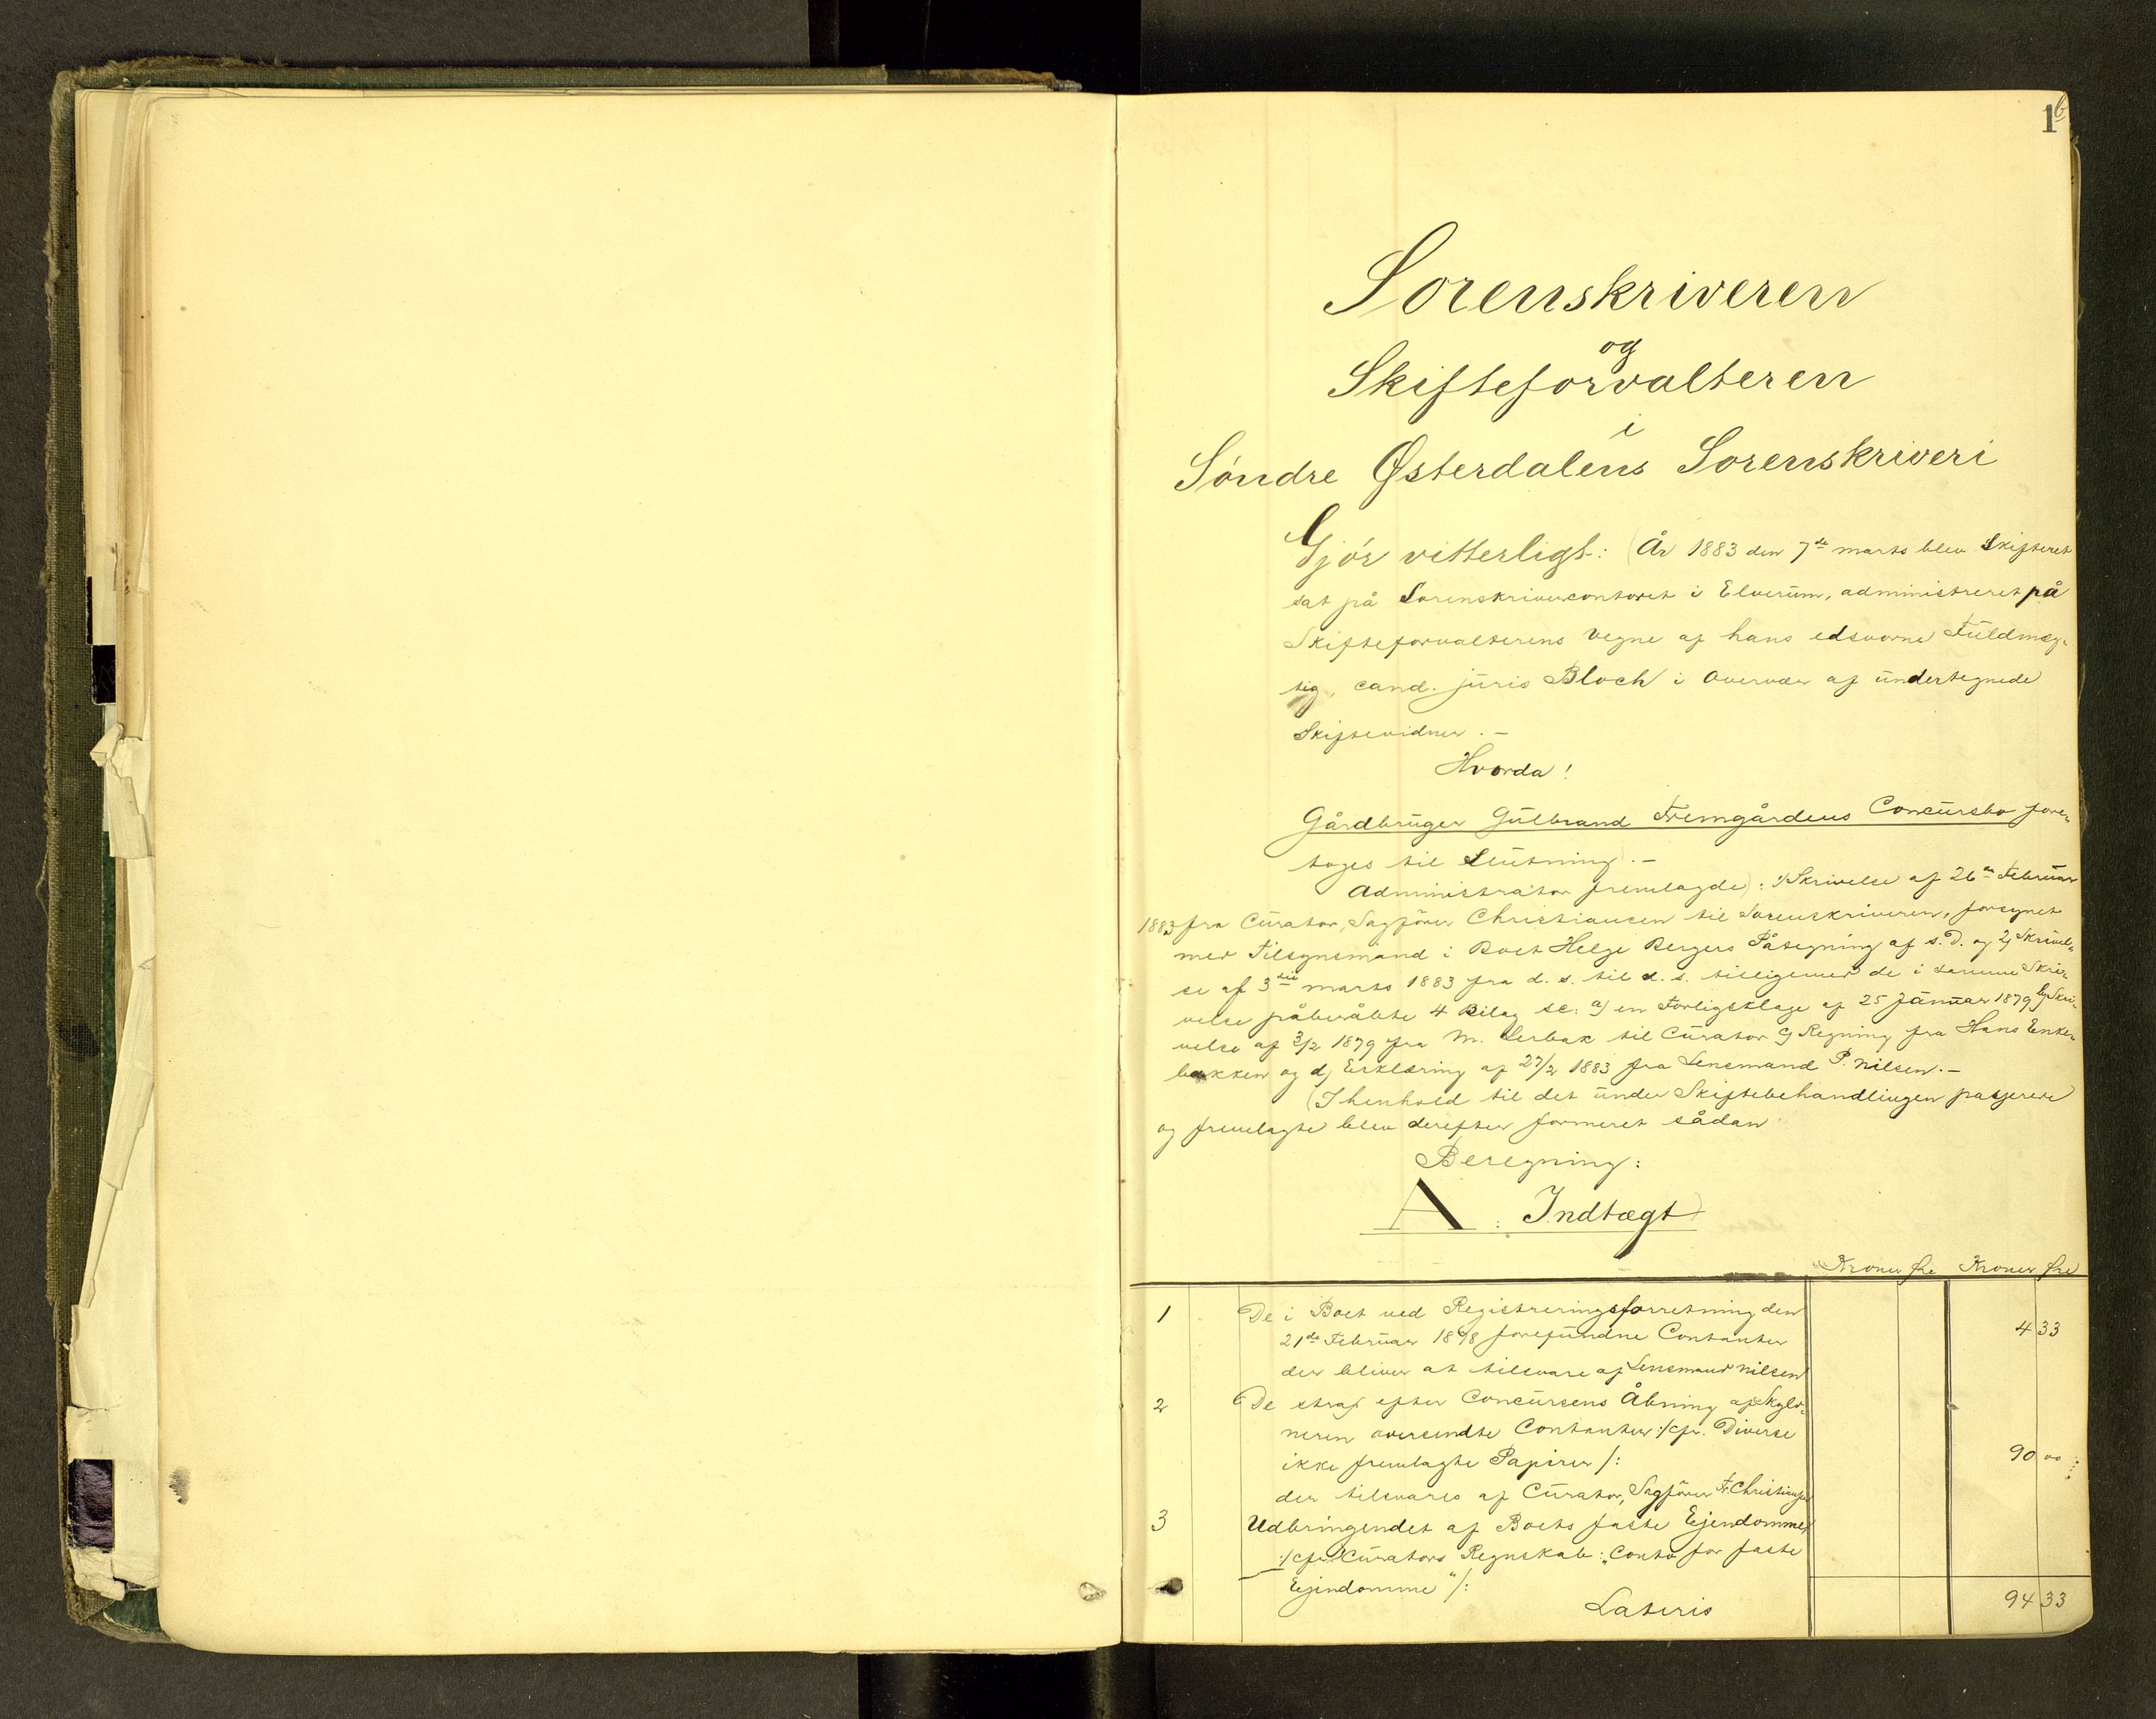 1b
Sorenskriveren
og
Skifteforvalteren
i
Söndre Østerdalens Sorenskriveri
Gjör vitterligt: (År 1883 den 7de marts blev Skifteret
sat på Sorenskrivercontoret i Elverum, administreret på
Skifteforvalterens Vegne af hans edsvorne Fuldmæg-
tig, cand. juris Bloch i Overvær af undertegnede
Skiftevidner. –
Hvorda!
Gårdbruger Gulbrand Fremgårdens Concursbo fore-
toges til Slutning). –
Administrator fremlagde): 1) Skrivelse af 26de Februar
1883 fra Curator, Sagförer Christiansen til Sorenskriveren, forsynet
med Tilsynsmand i Boet Helge Bergers Påtegning af s. D. og 2) Skrivel-
se af 3die marts 1883 fra d. s. til d. s. tilligemed de i samme Skri-
velse påberåbte 4 Bilag sc: a) en Forligsklage af 25 Januar 1879 b) Skri-
velse af 3/2 1879 fra M. Lerbak til Curator c) Regning fra Hans Enke-
bakken og d) Erklæring af 27/2 1883 fra Lensmand P. Nilsen. –
(I henhold til det under Skiftebehandlingen passerede
og fremlagte blev derefter formeret sådan
Beregning:
A: Indtægt
Kroner Øre Kroner Øre
1 De i Boet ved Registreringsforretning den
21de Februar 1878 forefundne Contanter 4 33
der bliver at tilsvare af Lensmand Nilsen
2 De strax efter Concursens Åbning af Skyld-
neren oversendte Contanter :/cfr. Diverse
ikke fremlagte Papirer/: 90 00
der tilsvares af Curator, Sagförer Fr. Christiansen
3 Udbringendet af Boets faste Ejendomme
:/cfr. Curators Regnskab: "Conto for faste
Ejendomme"/:
Lateris 94 33